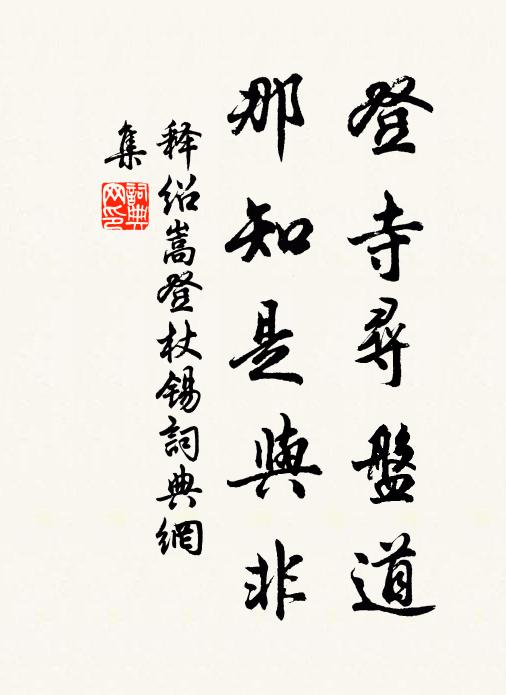 登寺尋盤道
那知是與非
释紹嵩登杖锡詞典網
集
詞典网印